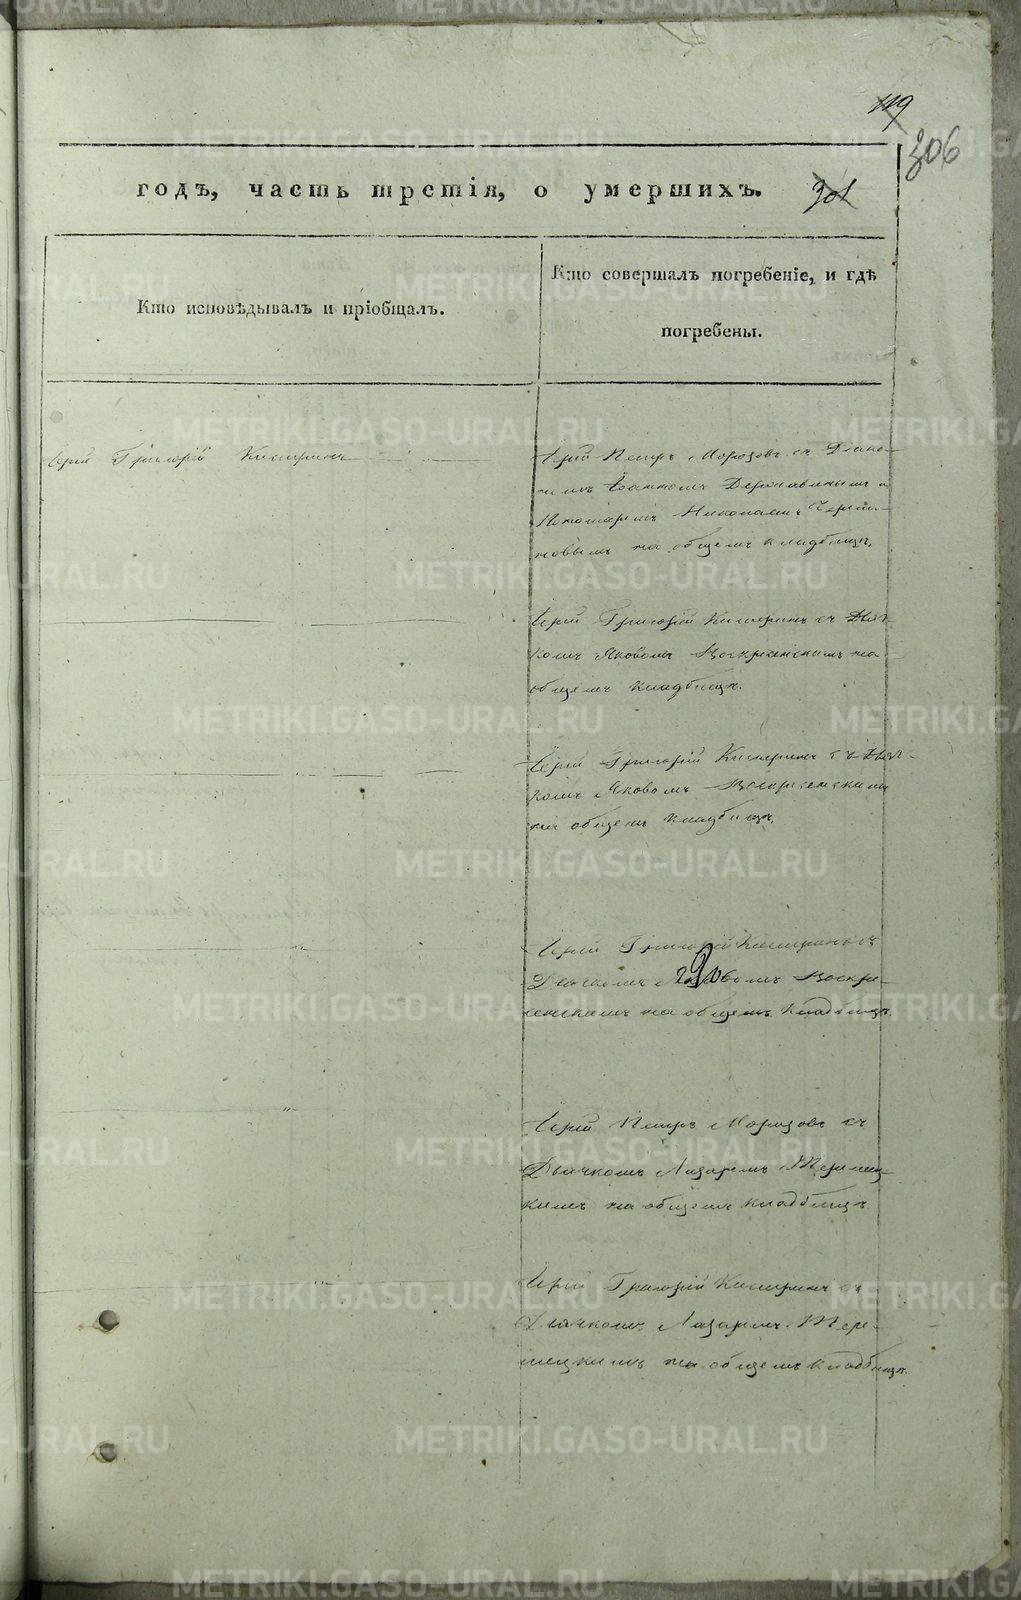 119
306
годъ, часть третія, о умершихъ. 301
Кто исповѣдывалъ и пріобщалъ.
Кто совершалъ погребеніе, и гдѣ
погребены.
Іерей Григорій
Іерей Петръ Морозовъ съ Діако-
номъ Іоанномъ Державинымъ и
Пономаремъ Николаемъ
новымъ на общемъ кладбищѣ.
Іерей Григорій съ Дьяч-
комъ Яковомъ Воскресенскимъ на
общемъ кладбищѣ.
Іерей Григорій съ Дьяч-
комъ Яковомъ Воскресенскимъ
на общемъ кладбищѣ.
Іерей Григорій съ
Дьячкомъ Яковомъ Воскре-
сенскимъ на общемъ кладбищѣ.
Іерей Петръ Морозовъ съ
Дьячкомъ Лазаремъ
кимъ на общемъ кладбищѣ
Іерей Григорій съ
Дьячкомъ Лазаремъ
на общемъ кладбищѣ.
METRIKI.GASO-URAL.RU